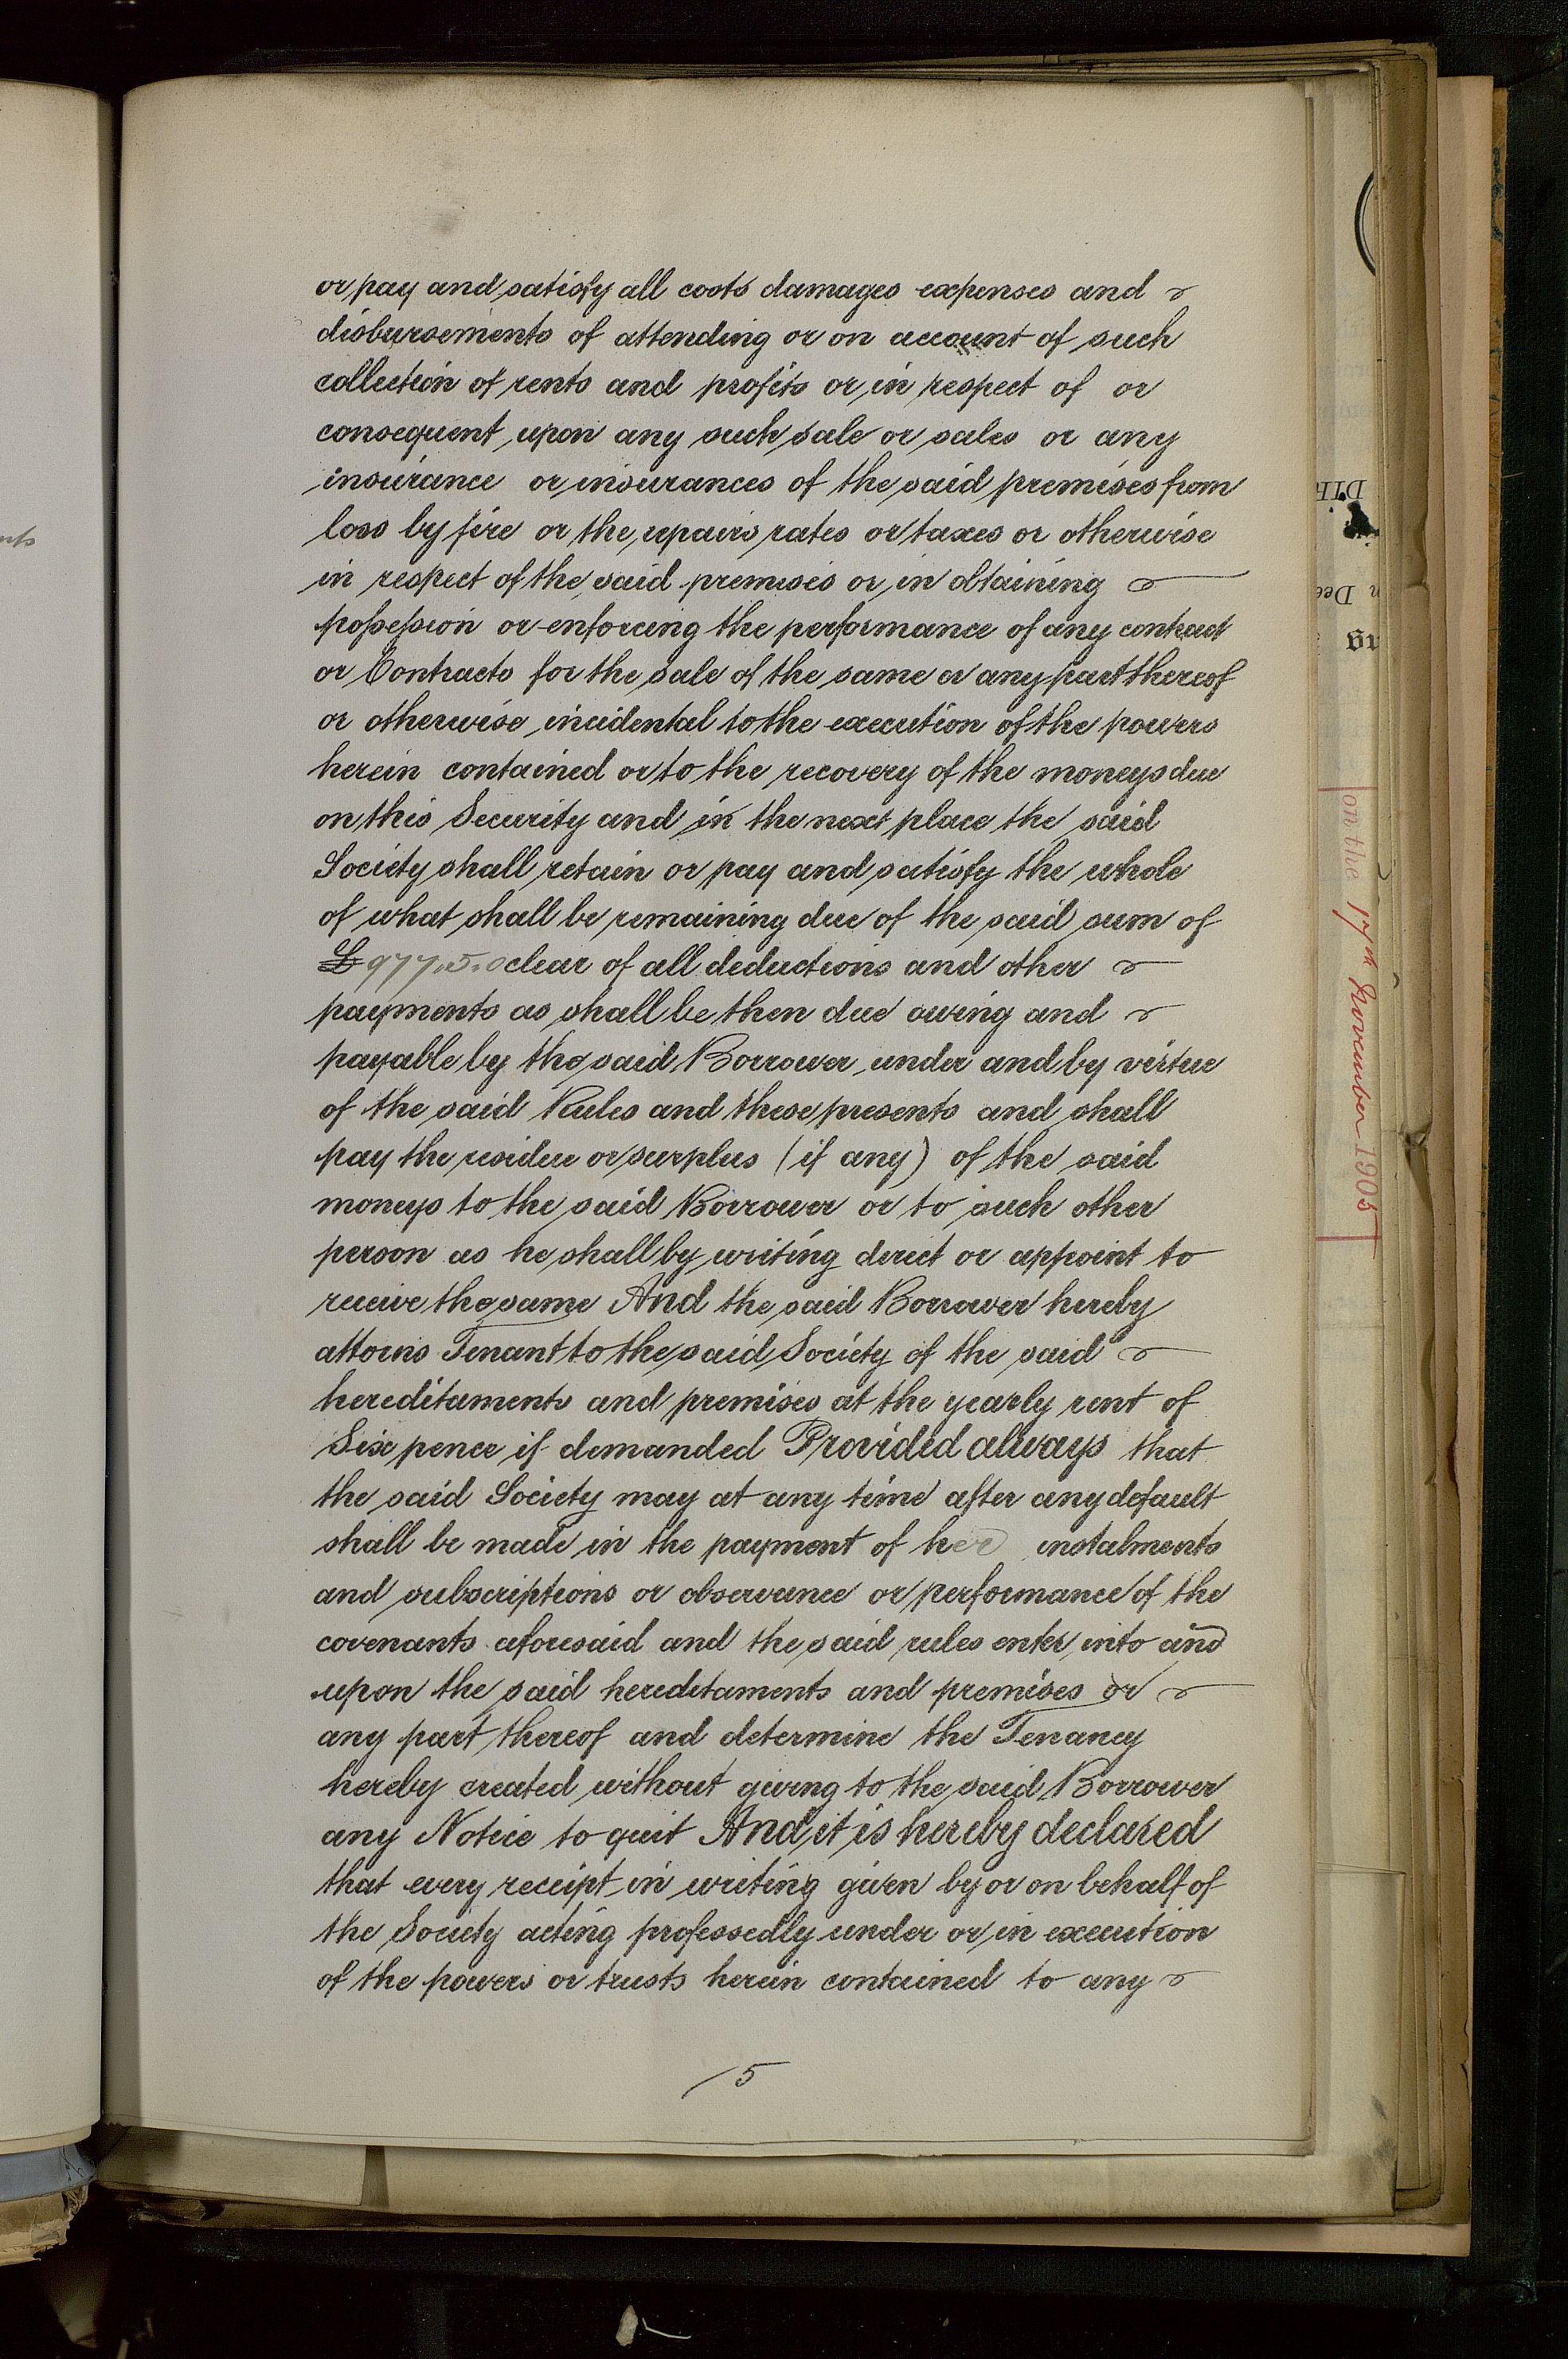 or pay and satisfy all costs damages expenses and
disbursements of attending or on account of such
collection of rents and profits or in respect of or
consequent upon any such sale or sales or any
insurance or insurances of the said premises from
loss by fire or the repairs rates or taxes or otherwise
in respect of the said premises or in obtaining
possession or enforcing the performance of any contract
or Contracts for the sale of the same or any part thereof
or otherwise incidental to the execution of the powers
herein contained or to the recovery of the moneys due
on this Security and in the next place the said
Society shall retain or pay and satisfy the whole
of what shall be remaining due of the said sum of
£977.5.0 clear of all deductions and other
payments as shall be then due owing and
payable by the said Borrower under and by virtue
of the said Rules and these presents and shall
pay the residue or surplus (if any) of the said
moneys to the said Borrower or to such other
person as he shall by writing direct or appoint to
receive the same And the said Borrower hereby
attorns Tenant to the said Society of the said
hereditaments and premises at the yearly rent of
Six pence if demanded Provided always that
the said Society may at any time after any default
shall be made in the payment of her instalments
and subscriptions or observance or performance of the
covenants aforesaid and the said rules enter into and
upon the said hereditaments and premises or
any part thereof and determine the Tenancy
hereby created without giving to the said Borrower
any Notice to quit And it is hereby declared
that every receipt in writing given by or on behalf of
the Society acting professedly under or in execution
of the powers or trusts herein contained to any
5
on the 17th November 1905